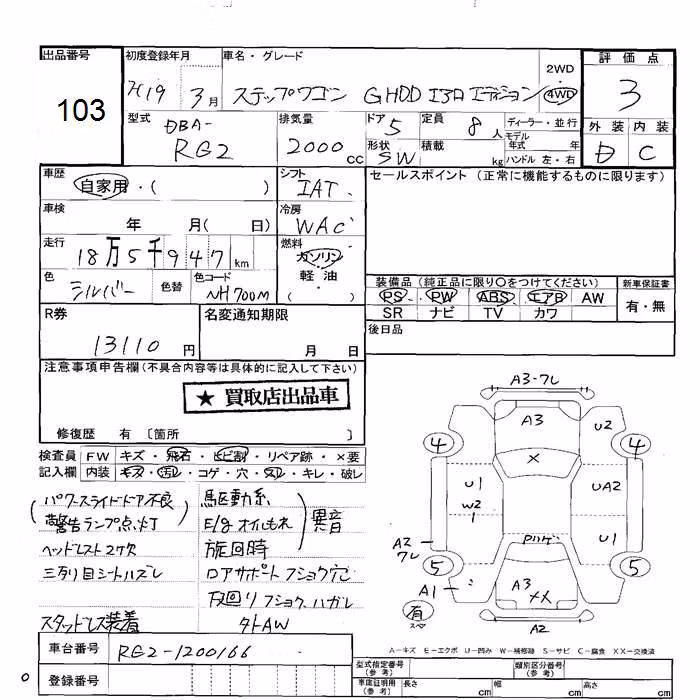 出品番号 初度登録年月 車名・グレード 2WD 評価点
103 H19 3月 ステップワゴン GHDDエアロエディション 4WD 3
型式 排気量 ドア 5 定員 8人 ディーラー・並行 外装 内装
DBA- モデル年式 年
RG2 2000cc 形状 SW 積載 kg ハンドル 左・右 D C
車歴 シフト セールスポイント (正常に機能するものに限ります)
自家用・( ) IAT
車検 冷房
年 月( 日) WAC
走行 燃料
18万5千947km ガソリン
軽・油
( )
色 色替 色コード
シルバー NH700M
装備品(純正品に限り〇をつけてください) 新車保証書
PS PW ABS エアB AW 有・無
SR ナビ TV カワ
R券 名変通知期限 後日品
13110円 月 日
注意事項申告欄(不具合内容等は具体的に記入して下さい)
★ 買取店出品車
修復歴 有 〔箇所 〕
検査員 FW キズ・飛石・ヒビ割・リペア跡・×要
記入欄 内装 キズ・汚レ・コゲ・穴・スレ・キレ・破レ
パワースライドドア不良
警告ランプ点灯
ヘッドレスト2ケ欠
三列目シートハズレ
スタッドレス装着
駆動系
E/gオイルもれ 異音
旋回時
ロアサポートフショク穴
下回りフショク、ハガレ
外AW
A3-フレ
A3 U2
4 4
X
U1 UA2
W2
1
A2 U1
フレ
5 5
A1 A3
XX
有
スペ
A2
A-キズ E-エクボ U-凹み W-補修跡 S-サビ C-腐食 XX-交換済
車台番号 RG2-1200166
登録番号
型式指定番号(参考) 類別区分番号(参考)
車庫証明用(参考) 長さ cm 幅 cm 高さ cm